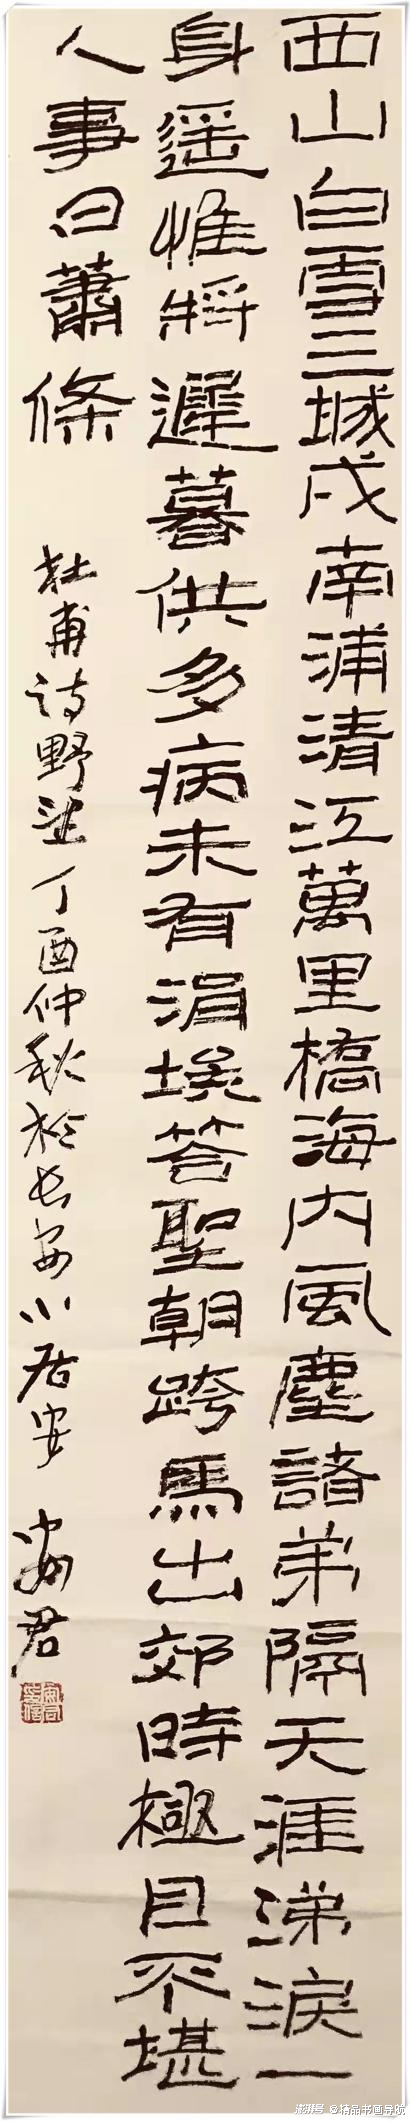 西山白雪三城戍南浦清江萬里橋海内風塵諸弟隔天涯涕淚一
身遥惟將遲暮供多病未有涓埃答聖朝跨馬出郊時極目不堪
人事日蕭條
杜甫诗野望丁酉仲秋於长安小居安
澎湃号 @精品书画导航